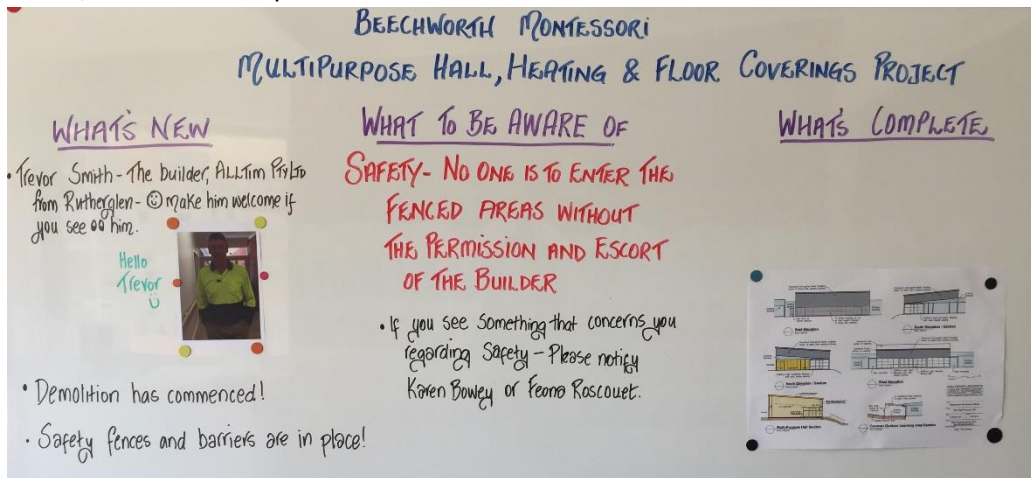 BEECHWORTH MONTESSORI
MULTIPURPOSE HALL, HEATING & FLOOR COVERINGS PROJECT
WHAT'S NEW
• Trevor Smith - The builder, ALLTIM PTY LTD
from Rutherglen - ☺ make him welcome if
you see him.
Hello
Trevor
• Demolition has commenced!
• Safety fences and barriers are in place!
WHAT TO BE AWARE OF
SAFETY - NO ONE IS TO ENTER THE
FENCED AREAS WITHOUT
THE PERMISSION AND ESCORT
OF THE BUILDER
• If you see something that concerns you
regarding Safety - Please notify
Karen Bowey or Feona Roscouet.
WHAT'S COMPLETE
East Elevation
South Elevation - Section
North Elevation / Section
West Elevation
Multi-Purpose Hall Section
Covered Outdoor Learning Area Section